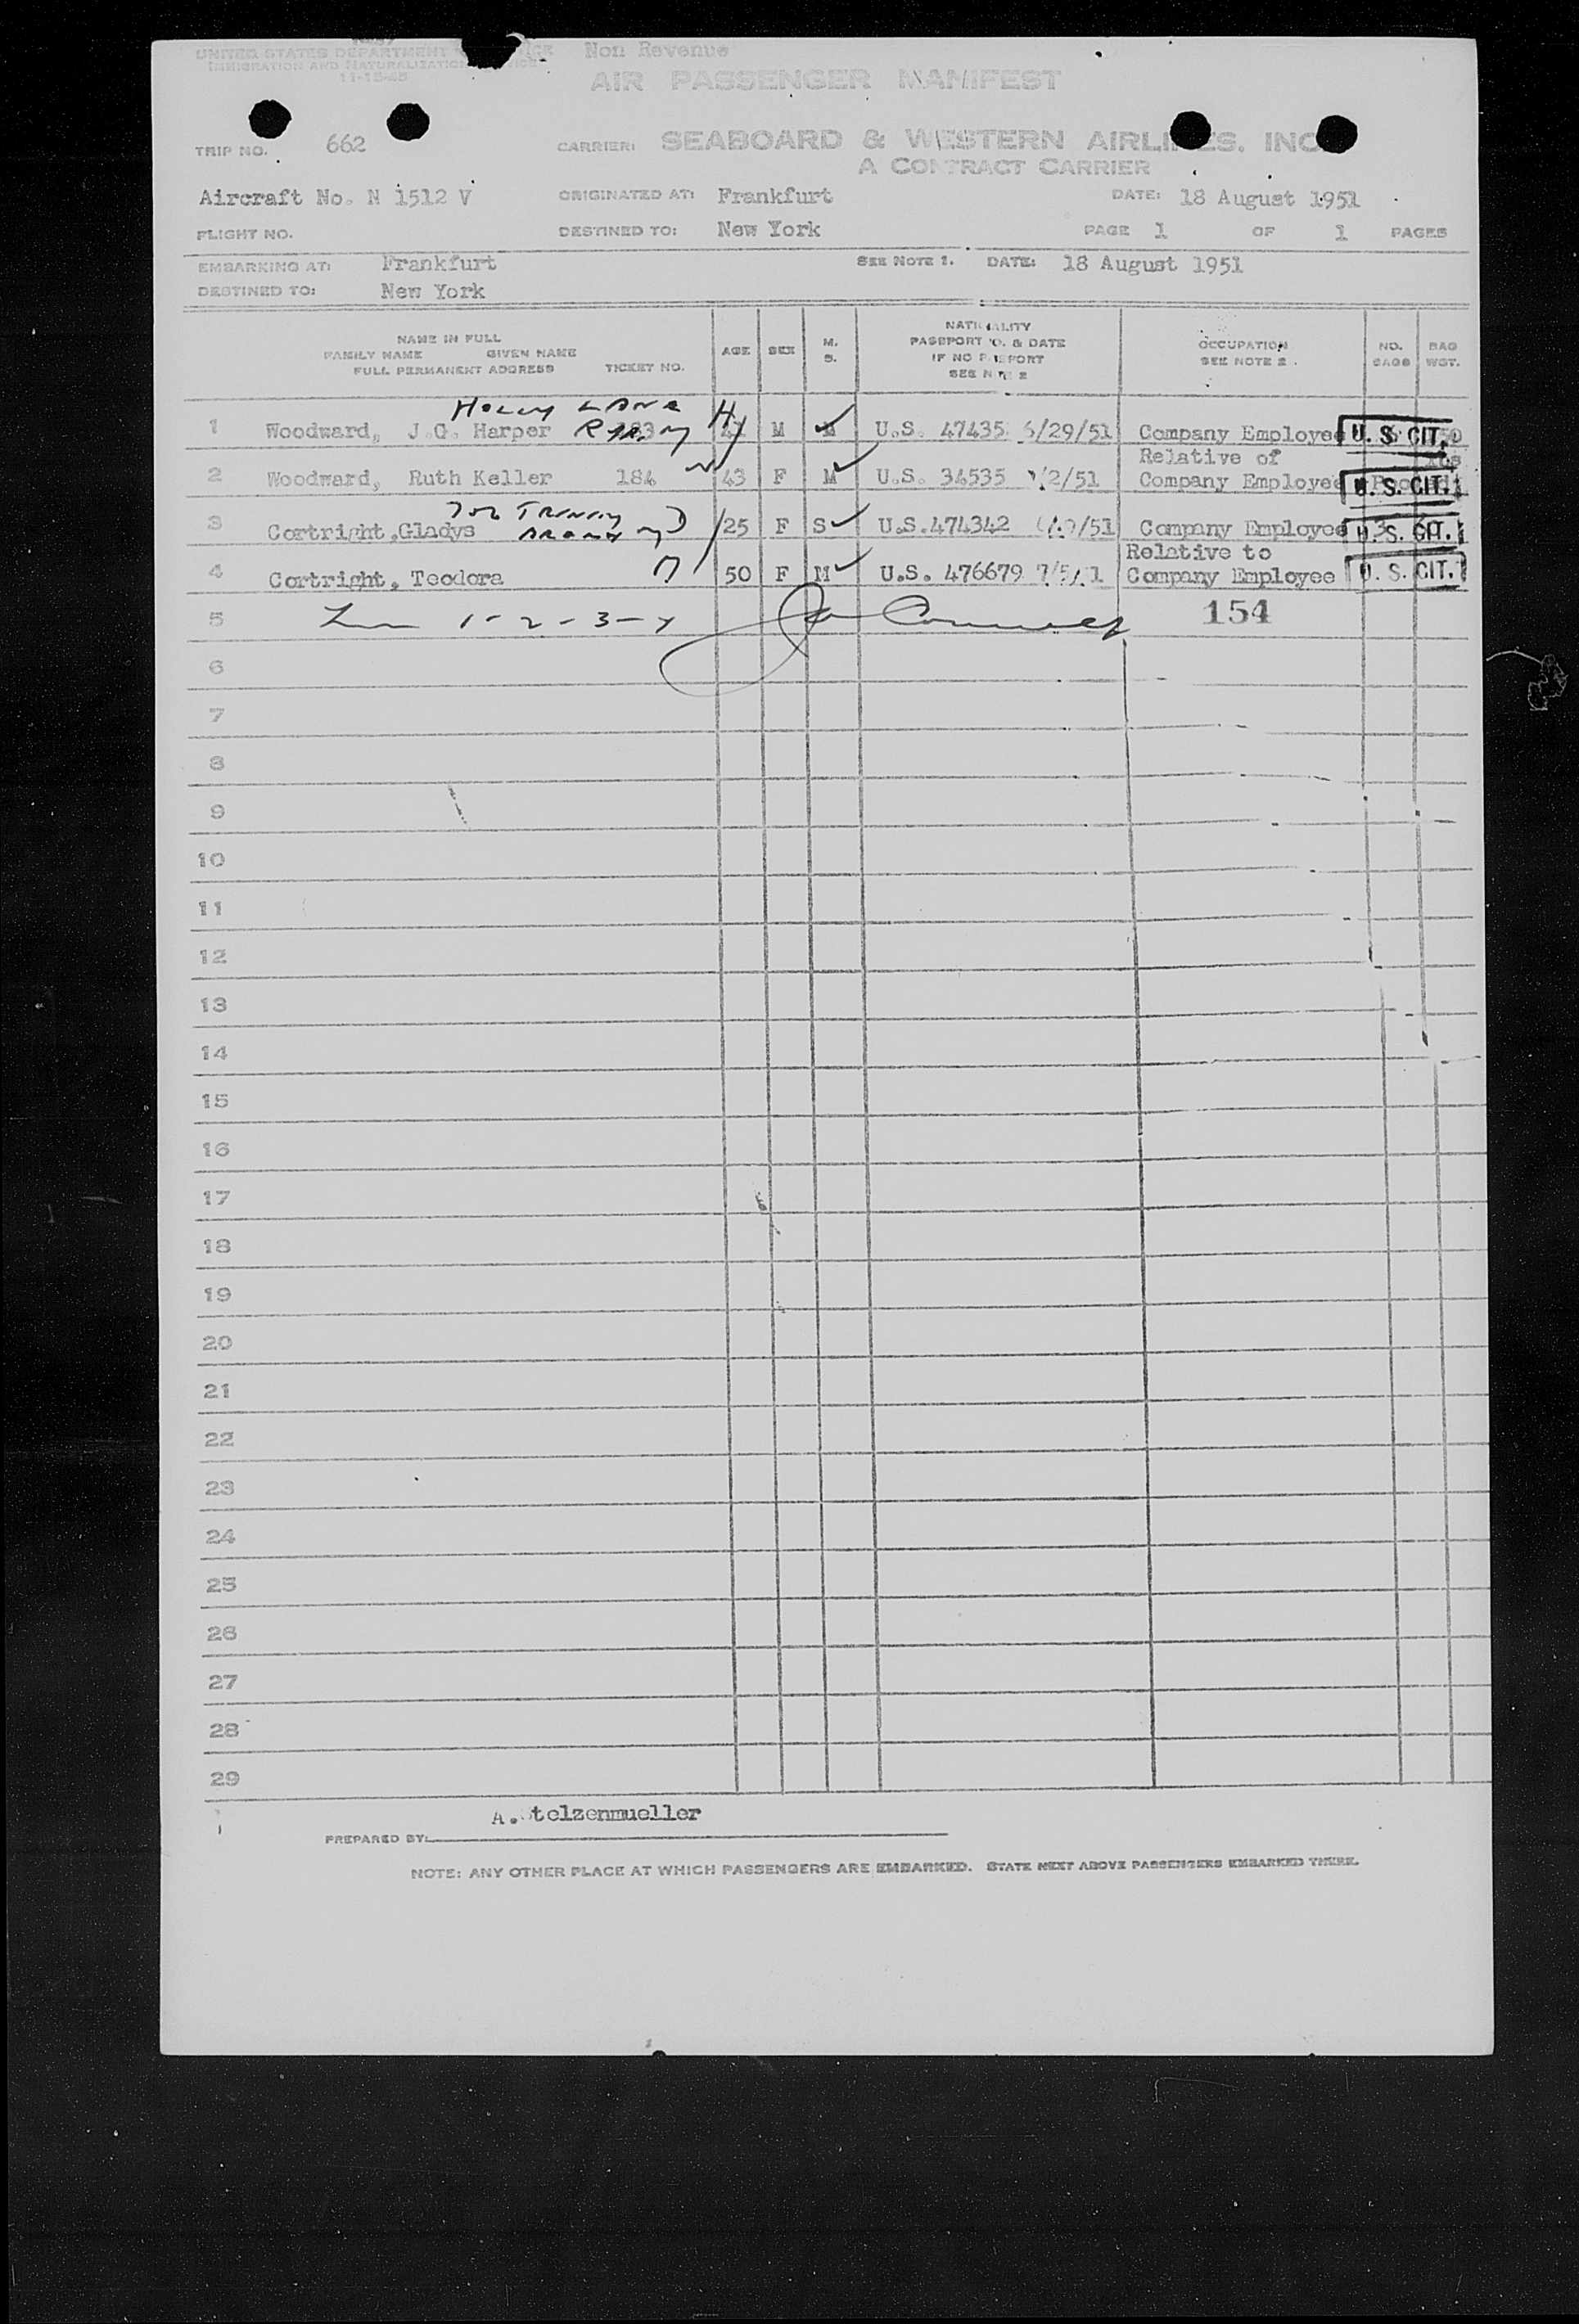 UNITED STATES DEPARTMENT Non Revenue
IMMIGRATION AND NATURALIZATION
11-15-45
AIR PASSENGER MANIFEST
TRIP NO. 662 CARRIER: SEABOARD & WESTERN AIRLINES, INC.
A CONTRACT CARRIER
Aircraft No. N 1512 V ORIGINATED AT: Frankfurt DATE: 18 August 1951
FLIGHT NO. DESTINED TO: New York PAGE 1 OF 1 PAGES
EMBARKING AT: Frankfurt SEE NOTE 1. DATE: 18 August 1951
DESTINED TO: New York
NAME IN FULL
FAMILY NAME GIVEN NAME
FULL PERMANENT ADDRESS TICKET NO.
AGE SEX M. S.
NATIONALITY
PASSPORT NO. & DATE
IF NO PASSPORT
SEE NOTE 2
OCCUPATION
SEE NOTE 2.
NO. BAGS
BAG WGT.
Holly Lane
1 Woodward, J.G. Harper M M U.S. 47435 6/29/51 Company Employee U. S. CIT.
Relative of
2 Woodward, Ruth Keller 184 43 F M U.S. 34535 /2/51 Company Employee U. S. CIT.
3 Cortright,Gladys 25 F S U.S.474342 /51 Company Employee U. S. CIT.
Relative to
4 Cortright, Teodora 50 F M U.S. 476679 7/5/ 1 Company Employee U. S. CIT.
5 1-2-3-4 154
6
7
8
9
10
11
12
13
14
15
16
17
18
19
20
21
22
23
24
25
26
27
28
29
A. Stelzenmueller
PREPARED BY:
NOTE: ANY OTHER PLACE AT WHICH PASSENGERS ARE EMBARKED. STATE NEXT ABOVE PASSENGERS EMBARKED THERE.